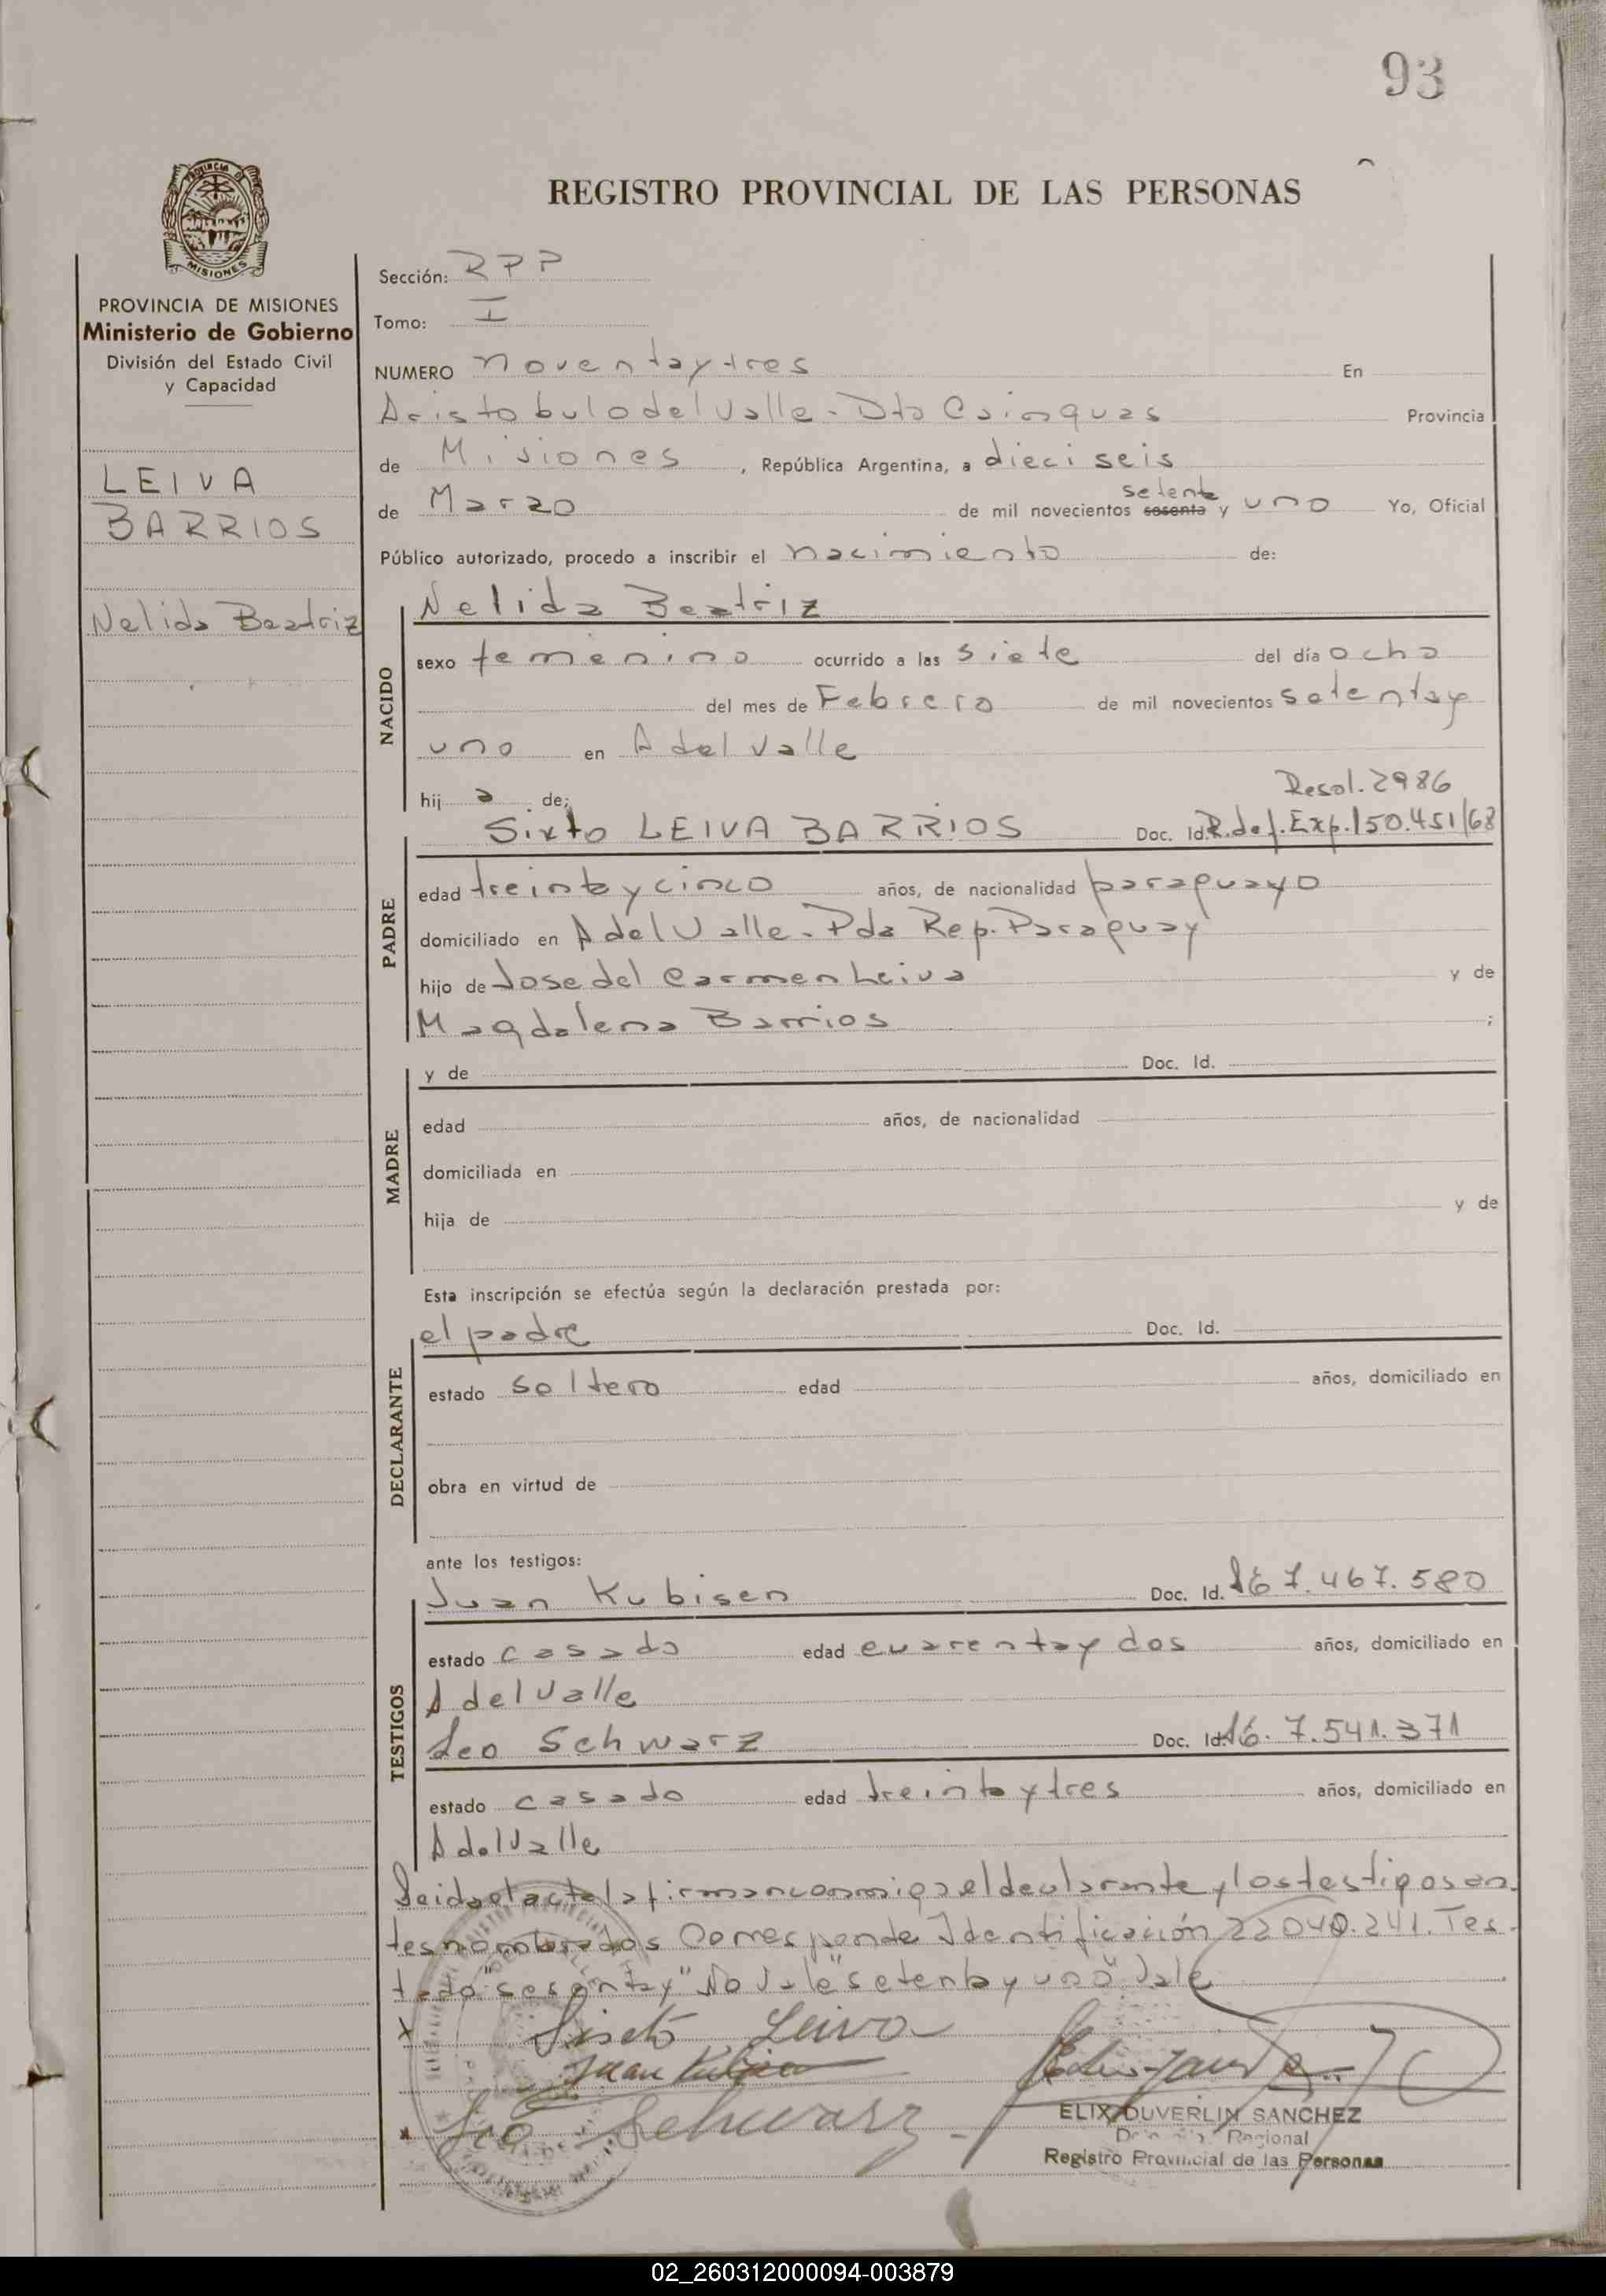 93
REGISTRO PROVINCIAL DE LAS PERSONAS
MISIONES
PROVINCIA DE MISIONES
Ministerio de Gobierno
División del Estado Civil
y Capacidad
LEIVA
BARRIOS
Nelida Beatriz
Sección: RPP
Tomo: I
NUMERO Noventaytres En
Aristobulo del Valle - Dto Cainguas Provincia
de Misiones, República Argentina, a dieciseis
setenta
de Marzo de mil novecientos sesenta y uno Yo, Oficial
Público autorizado, procedo a inscribir el nacimiento de:
NACIDO
Nelida Beatriz
sexo femenino ocurrido a las siete del día ocho
del mes de Febrero de mil novecientos setentay
uno en A del Valle
Resol. 2986
hij a de;
PADRE
Sixto LEIVA BARRIOS Doc. Id. R. def. Exp. 150.451/68
edad treinta y cinco años, de nacionalidad paraguayo
domiciliado en A del Valle - Pda Rep. Paraguay
hijo de Jose del Carmen Leiva y de
Magdalena Barrios ;
MADRE
y de Doc. Id.
edad años, de nacionalidad
domiciliada en
hija de y de
Esta inscripción se efectúa según la declaración prestada por:
DECLARANTE
el padre Doc. Id.
estado soltero edad años, domiciliado en
obra en virtud de
ante los testigos:
TESTIGOS
Juan Kubisen Doc. Id. 7.467.580
estado casado edad cuarentay dos años, domiciliado en
A del Valle
Leo Schwarz Doc. Id. 7.541.371
estado casado edad treinta y tres años, domiciliado en
A del Valle
Leida el acta la firman conmigo el declarante y los testigos an
tes nombrados Corresponde Identificación 22040.241. Tes
tado "sesentay" No Vale "setenta y uno" Vale
x Sixto Leiva
Juan
x Leo Schwarz
ELIX DUVERLIN SANCHEZ
Regional
Registro Provincial de las Personas
02_260312000094-003879